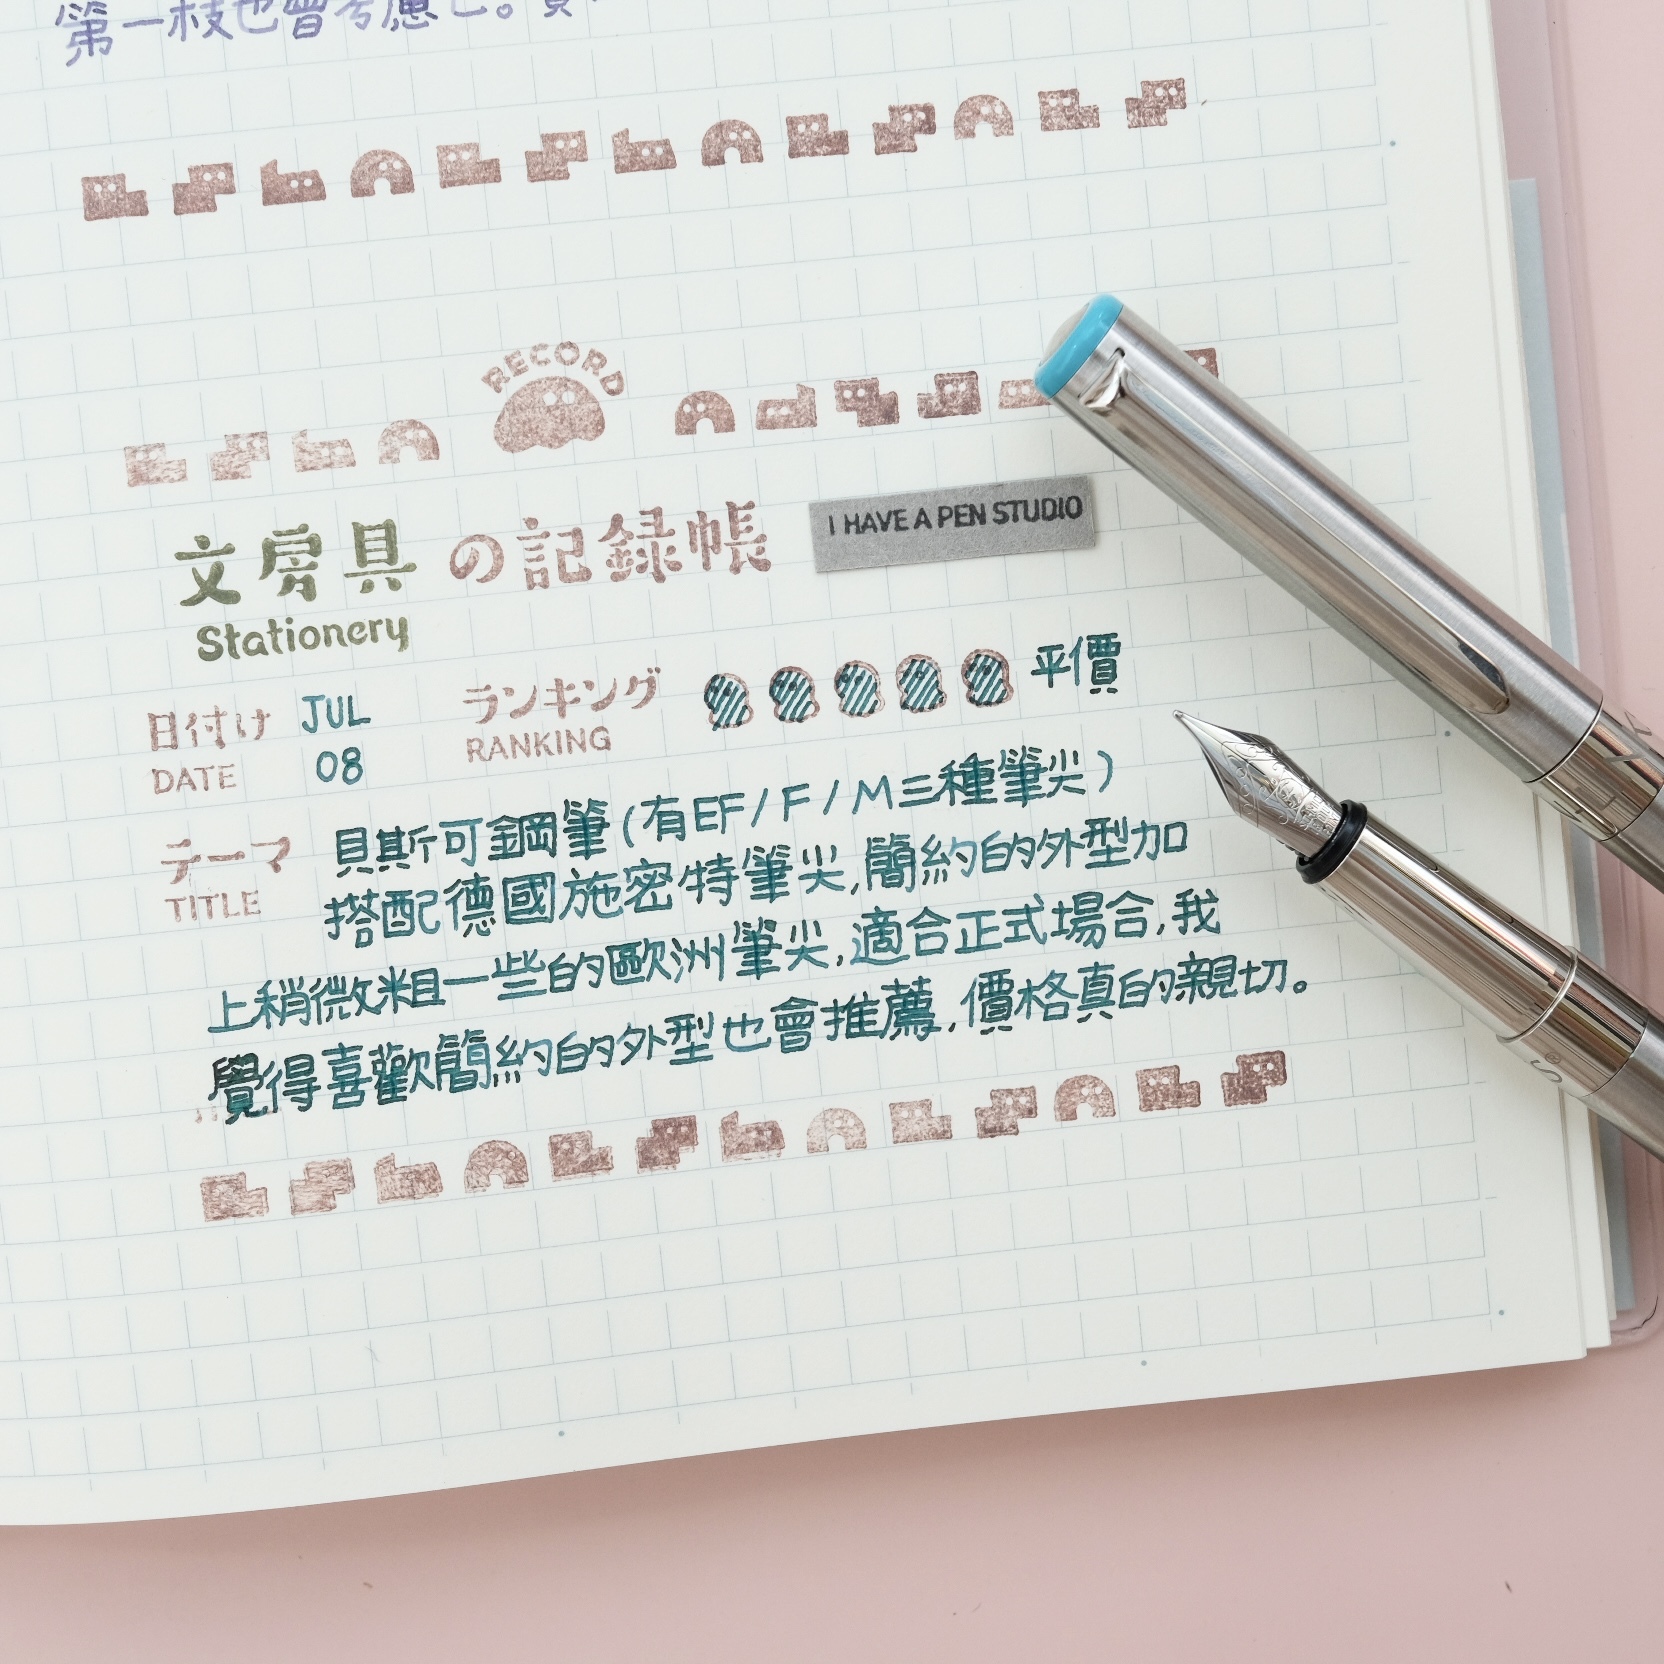 第一枝也會考慮它。
RECORD
文房具の記録帳
I HAVE A PEN STUDIO
Stationery
日付け JUL
DATE 08
ランキング 平價
RANKING
テーマ
TITLE
貝斯可鋼筆(有EF/F/M三種筆尖)
搭配德國施密特筆尖,簡約的外型加
上稍微粗一些的歐洲筆尖,適合正式場合,我
覺得喜歡簡約的外型也會推薦,價格真的親切。